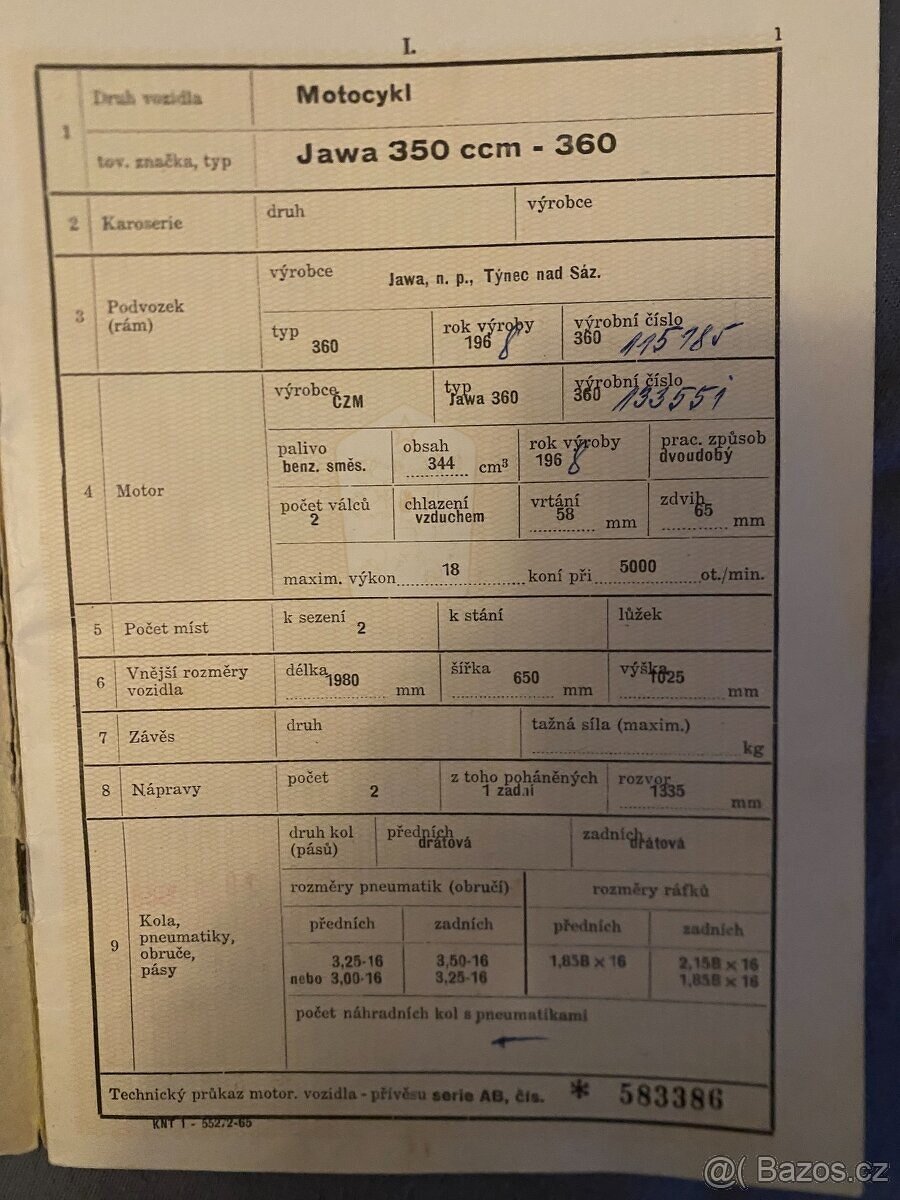 I.
1
1 Druh vozidla Motocykl
tov. značka, typ Jawa 350 ccm - 360
2 Karoserie druh výrobce
3 Podvozek (rám) výrobce Jawa, n. p., Týnec nad Sáz.
typ rok výroby výrobní číslo
360 196 8 360 115785
4 Motor výrobce typ výrobní číslo
ČZM Jawa 360 360 133551
palivo obsah rok výroby prac. způsob
benz. směs. 344 cm³ 196 8 dvoudobý
počet válců chlazení vrtání zdvih
2 vzduchem 58 mm 65 mm
maxim. výkon 18 koní při 5000 ot./min.
5 Počet míst k sezení 2 k stání lůžek
6 Vnější rozměry vozidla délka 1980 mm šířka 650 mm výška 1025 mm
7 Závěs druh tažná síla (maxim.) kg
8 Nápravy počet 2 z toho poháněných 1 zadní rozvor 1335 mm
9 Kola, pneumatiky, obruče, pásy
druh kol (pásů) předních drátová zadních drátová
rozměry pneumatik (obručí) rozměry ráfků
předních zadních předních zadních
3,25-16 3,50-16 1,85B × 16 2,15B × 16
nebo 3,00-16 3,25-16 1,85B × 16
počet náhradních kol s pneumatikami
Technický průkaz motor. vozidla - přívěsu serie AB, čís. * 583386
KNT 1 - 55272-65
@( Bazos.cz